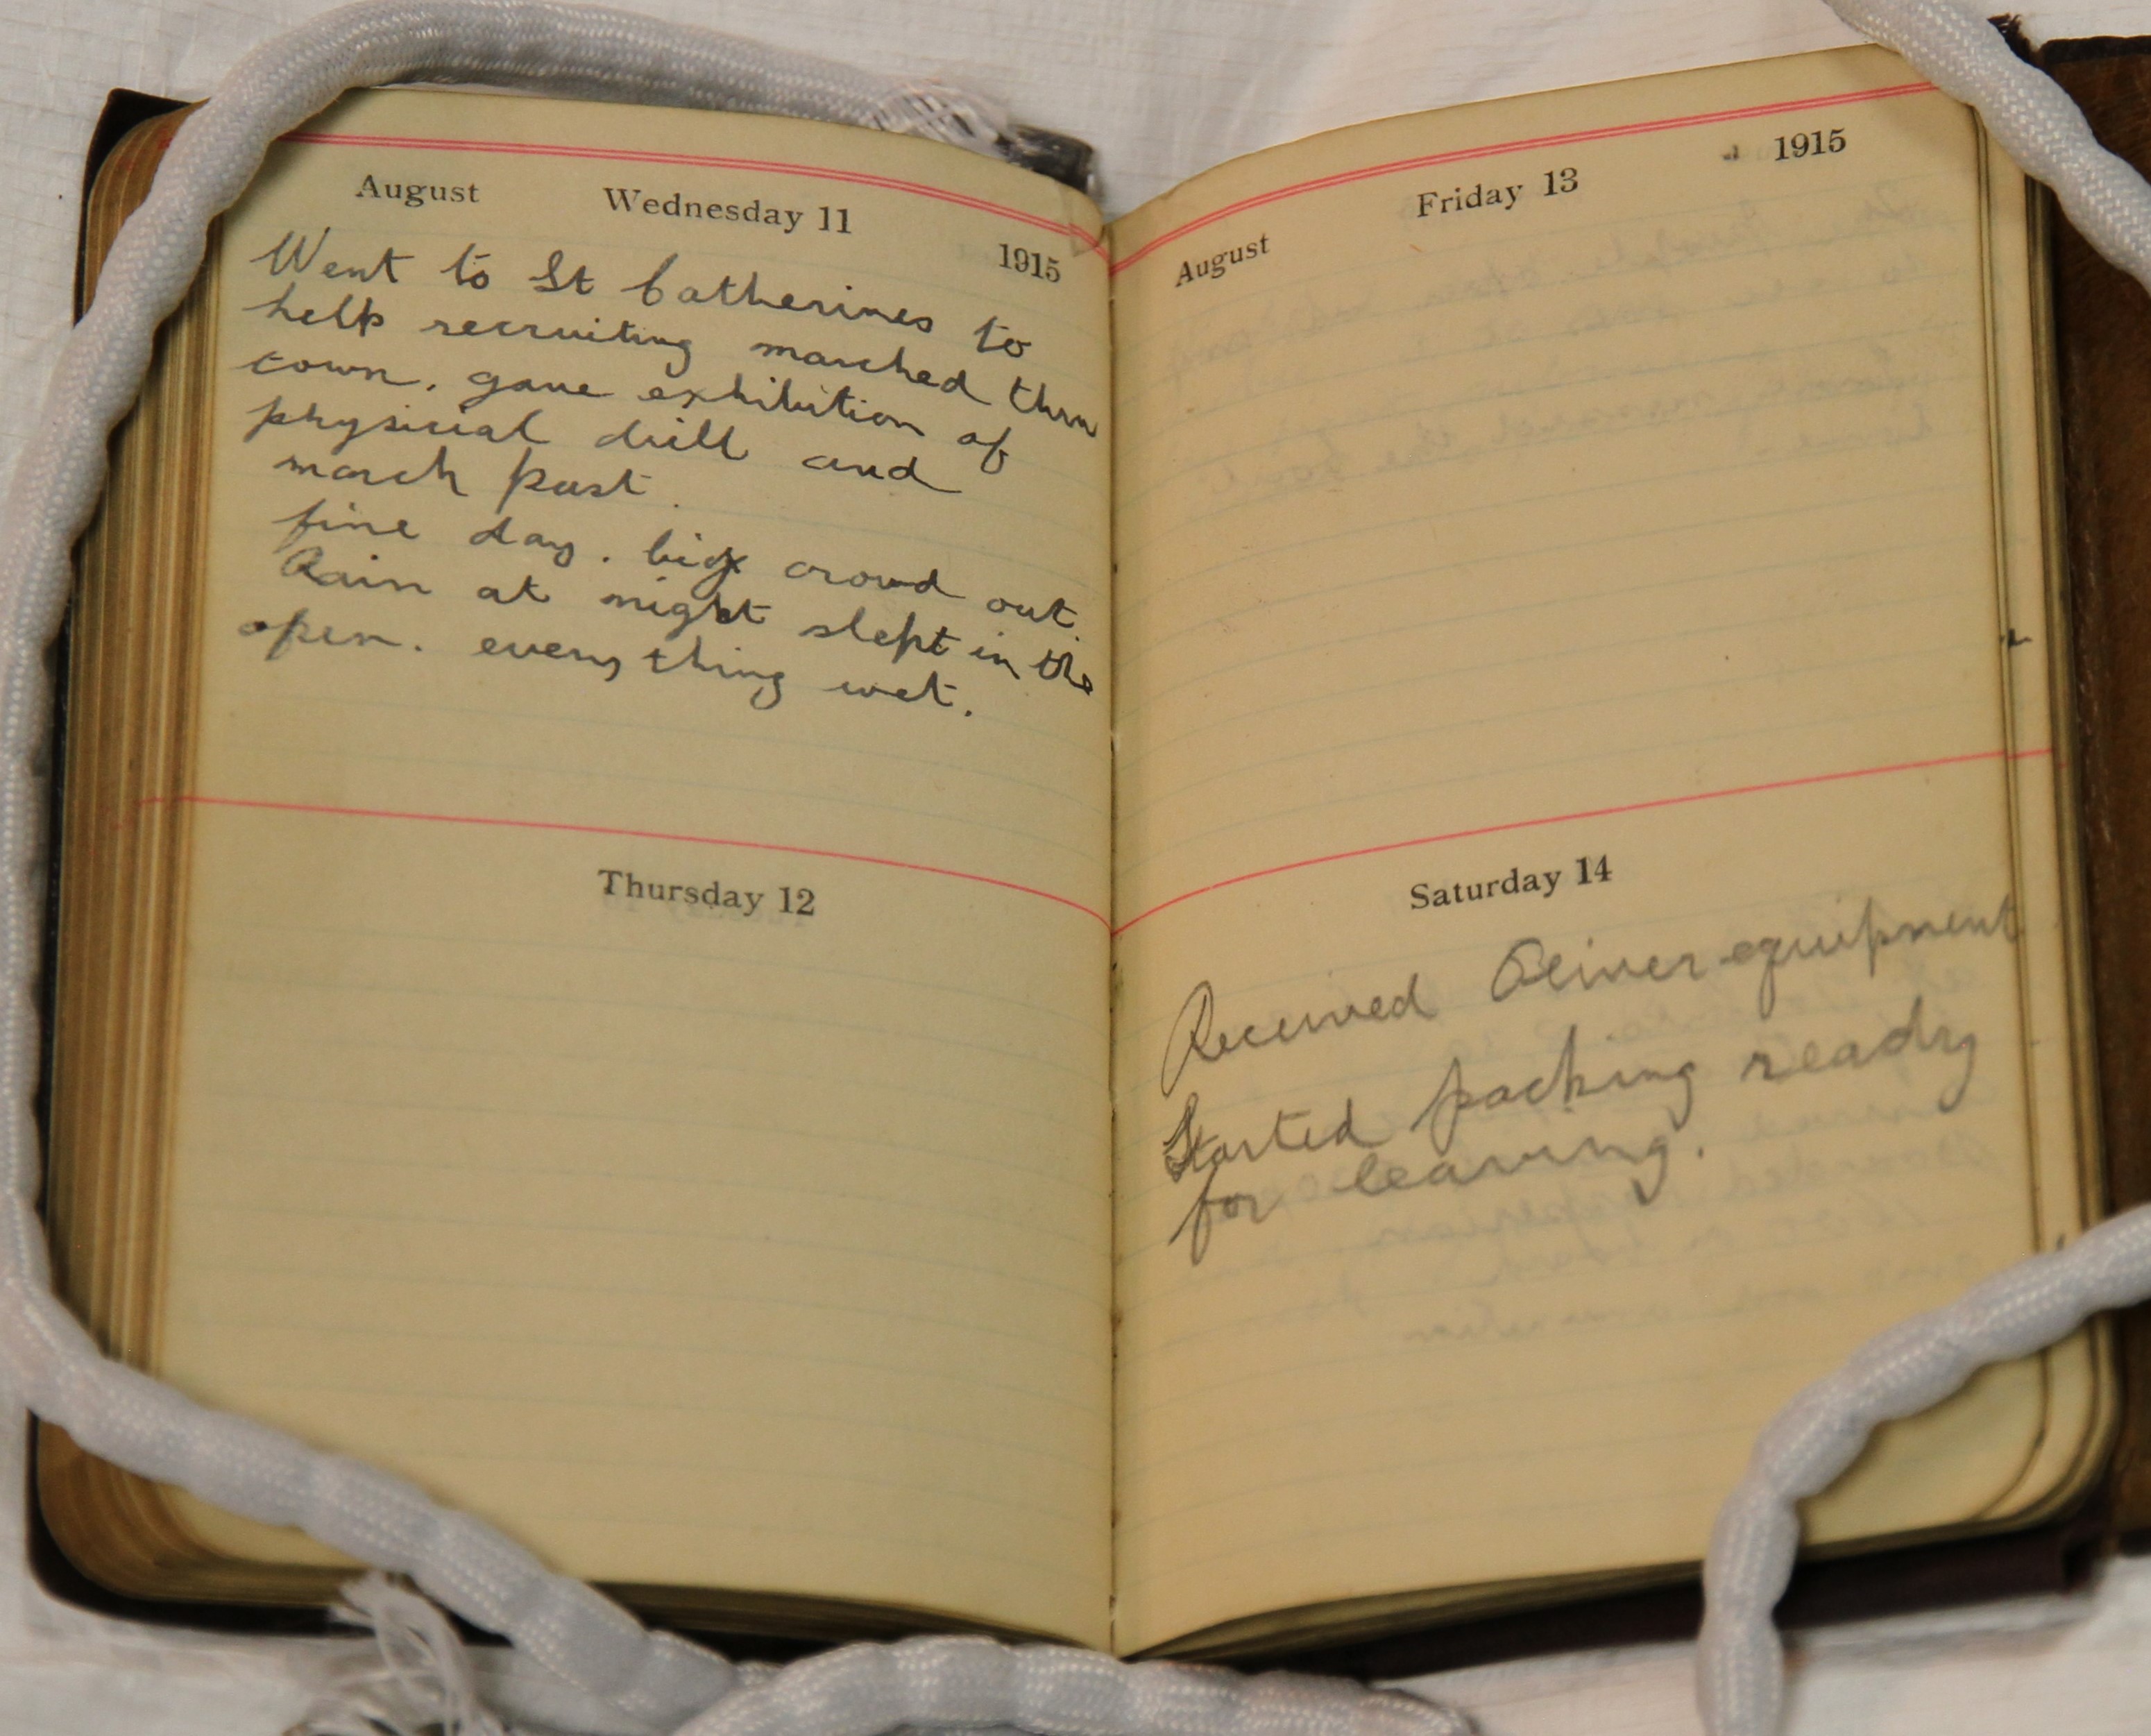 August Wednesday 11 1915
Went to St Catherines to
help recruiting marched thru
town. gave exhibition of
physicial drill and
march past.
fine day. big crowd out.
Rain at night slept in the
open. every thing wet.
Thursday 12
August Friday 13 1915
Saturday 14
Received Oliver equipment
Started packing ready
for leaving.